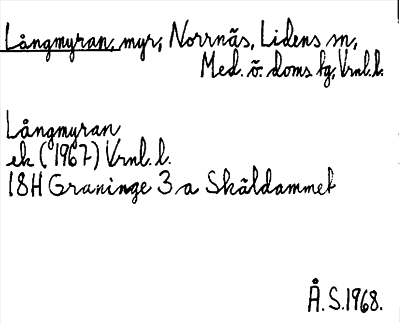 Långmyran, myr, Norrnäs, Lidens sn,
Med. ö. doms fg, Vrnl. l.
Långmyran
ek (1967) Vrnl. l.
18H Graninge 3 a Skäldammet
Å. S. 1968.